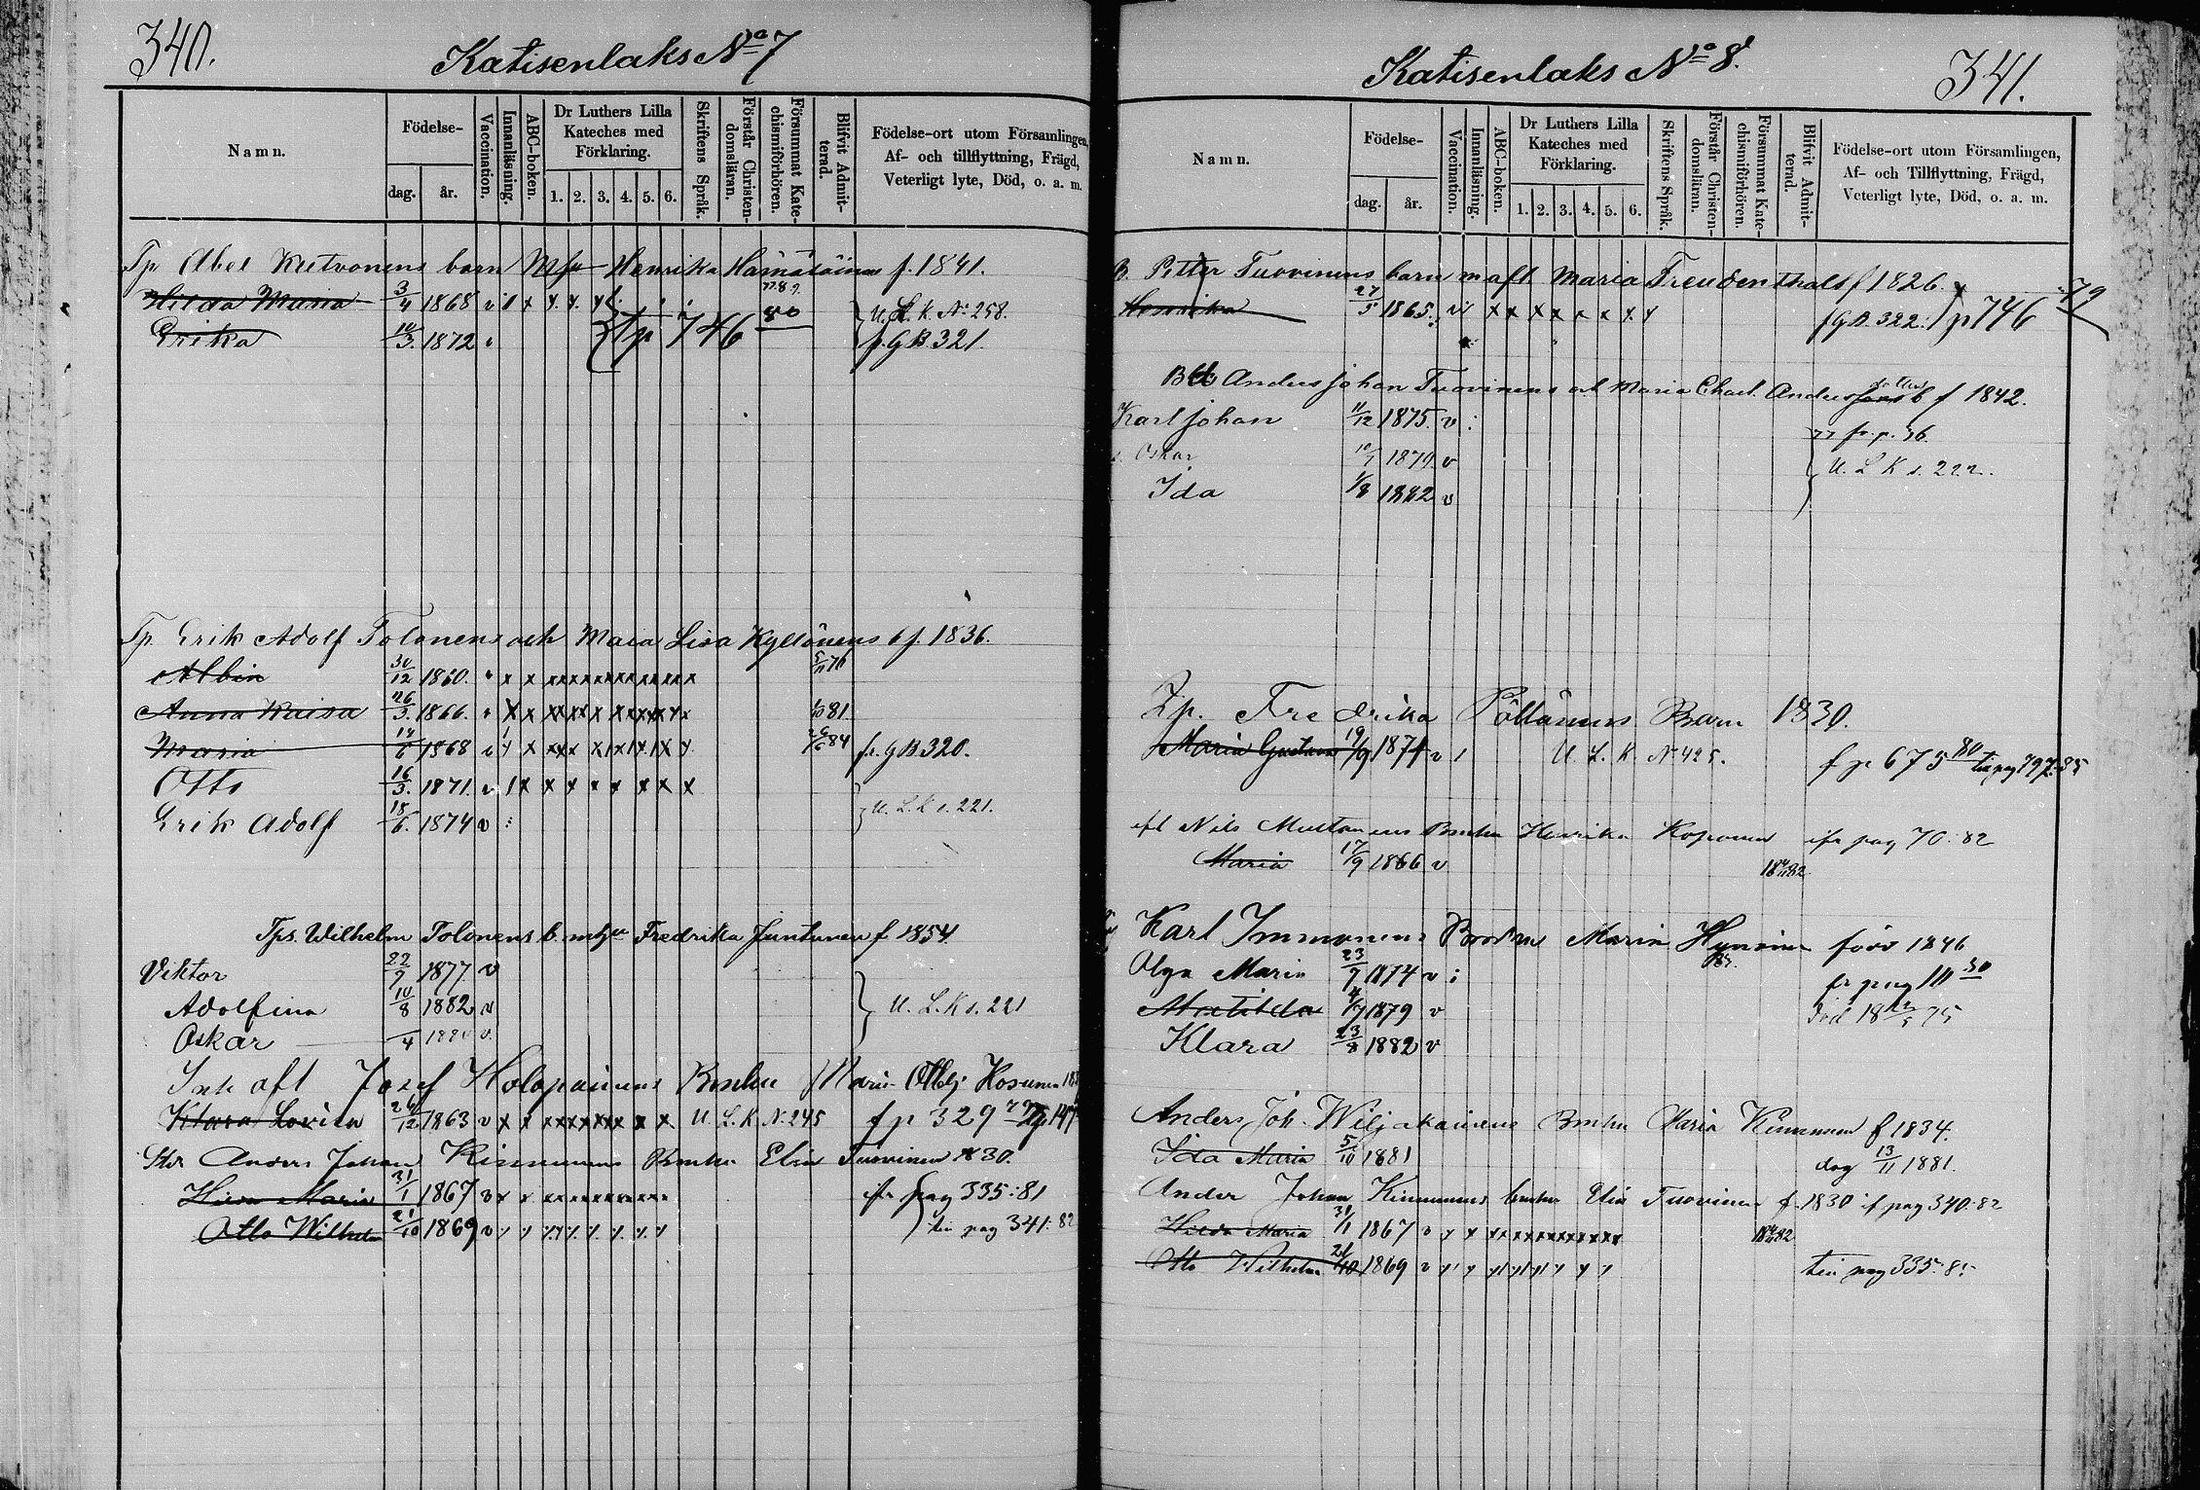 340.
Katisenlaks No 7
Namn.
Födelse-
dag.
år.
Vaccination.
Innanläsning.
ABC-boken.
Dr Luthers Lilla
Kateches med
Förklaring.
1. 2. 3. 4. 5. 6.
Skriftens Språk.
Förstår Christen-
domsläran.
Försummat Kate-
chismiförhören.
Blifvit Admit-
terad.
Födelse-ort utom Församlingen,
Af- och tillflyttning, Frägd,
Veterligt lyte, Död, o. a. m.
Tp Abel Kutvonens barn Henrika f. 1841.
Hilda Maria 3/4 1868 v 1 x x x x 80 U. L. K. No 258.
Erika 10/3. 1872 tp 746 f. GB 321.
Tp. Erik Adolf Tolonens och Maia Lisa Kyllönens b f. 1836.
Albin 30/12 1860. x x x x x x x x x x x x x
Anna Kaisa 26/3. 1866. x x x x x x x x x x x 81
Maria 1868 x x x x x x x x x 84 fr. GB 320.
Otto 16/3. 1871. v 1 x x x x x x x x
Erik Adolf 18/6. 1874 v : U. L. K s. 221.
Tps. Wilhelm Tolonens b. m hu Fredrika Juntunen f 1854
Viktor 22/9 1877. v
Adolfina 10/8 1882 v U. L. K s. 221
Oskar /4 v.
Inh aft Josef Holopainens Brnhu Maria Kosunen
Klara Lovisa 26/12 1863 v x x x x x x x x x x U. L. K. N. 245 f p 329 79
Anders Johan Kinnunens Brnhu Elin Tuovinen 1830.
Hilda Maria 31/1 1867 v x x x x x x x x x x ifr pag 335:81
Otto Wilhelm 21/10 1869 v x x x x x x x x x till pag 341:82
341.
Katisenlaks No 8.
Namn.
Födelse-
dag.
år.
Vaccination.
Innanläsning.
ABC-boken.
Dr Luthers Lilla
Kateches med
Förklaring.
1. 2. 3. 4. 5. 6.
Skriftens Språk.
Förstår Christen-
domsläran.
Försummat Kate-
chismiförhören.
Blifvit Admit-
terad.
Födelse-ort utom Församlingen,
Af- och Tillflyttning, Frägd,
Veterligt lyte, Död, o. a. m.
B. Petter Tuovinens barn m aft. Maria Freudenthals f 1826. 79
Henrika 27/5 1865. v x x x x x x x x f GB. 322. p 746
Anders Johan Tuovinens och Maria Charl. Anders b f 1842.
Karl Johan 11/12 1875. v : 77 fr. p. 36.
Oskar 1879. v U. L K s. 222.
Ida 1/8 1882 v
Fredrika Pöllänens Barn 1830.
Maria Gustava 19/9 1871 v 1 U. L. K No 425. f p 675 80 till pag 797:85
Nils Mustonens Brnhu Henrika Koponen ifr pag 70:82
Maria 17/9 1866 v
Karl Immonens Brnhu Maria född 1846
Olga Maria 23/7 1874 v : fr pag 111 80
Matilda 1879 v Död 75
Klara 23/8 1882 v
Anders Joh. Wiljakainens Brnhu Maria Kinnunen f 1834.
Ida Maria 5/10 1881 dog 13/11 1881.
Ander Johan Kinnunens brnhu Elin Tuovinen f. 1830 if pag 340:82
Hilda Maria 31/1 1867 v x x x x x x x x x x x x
Otto Wilhelm 21/10 1869 v x x x x x x x x till pag 335:85